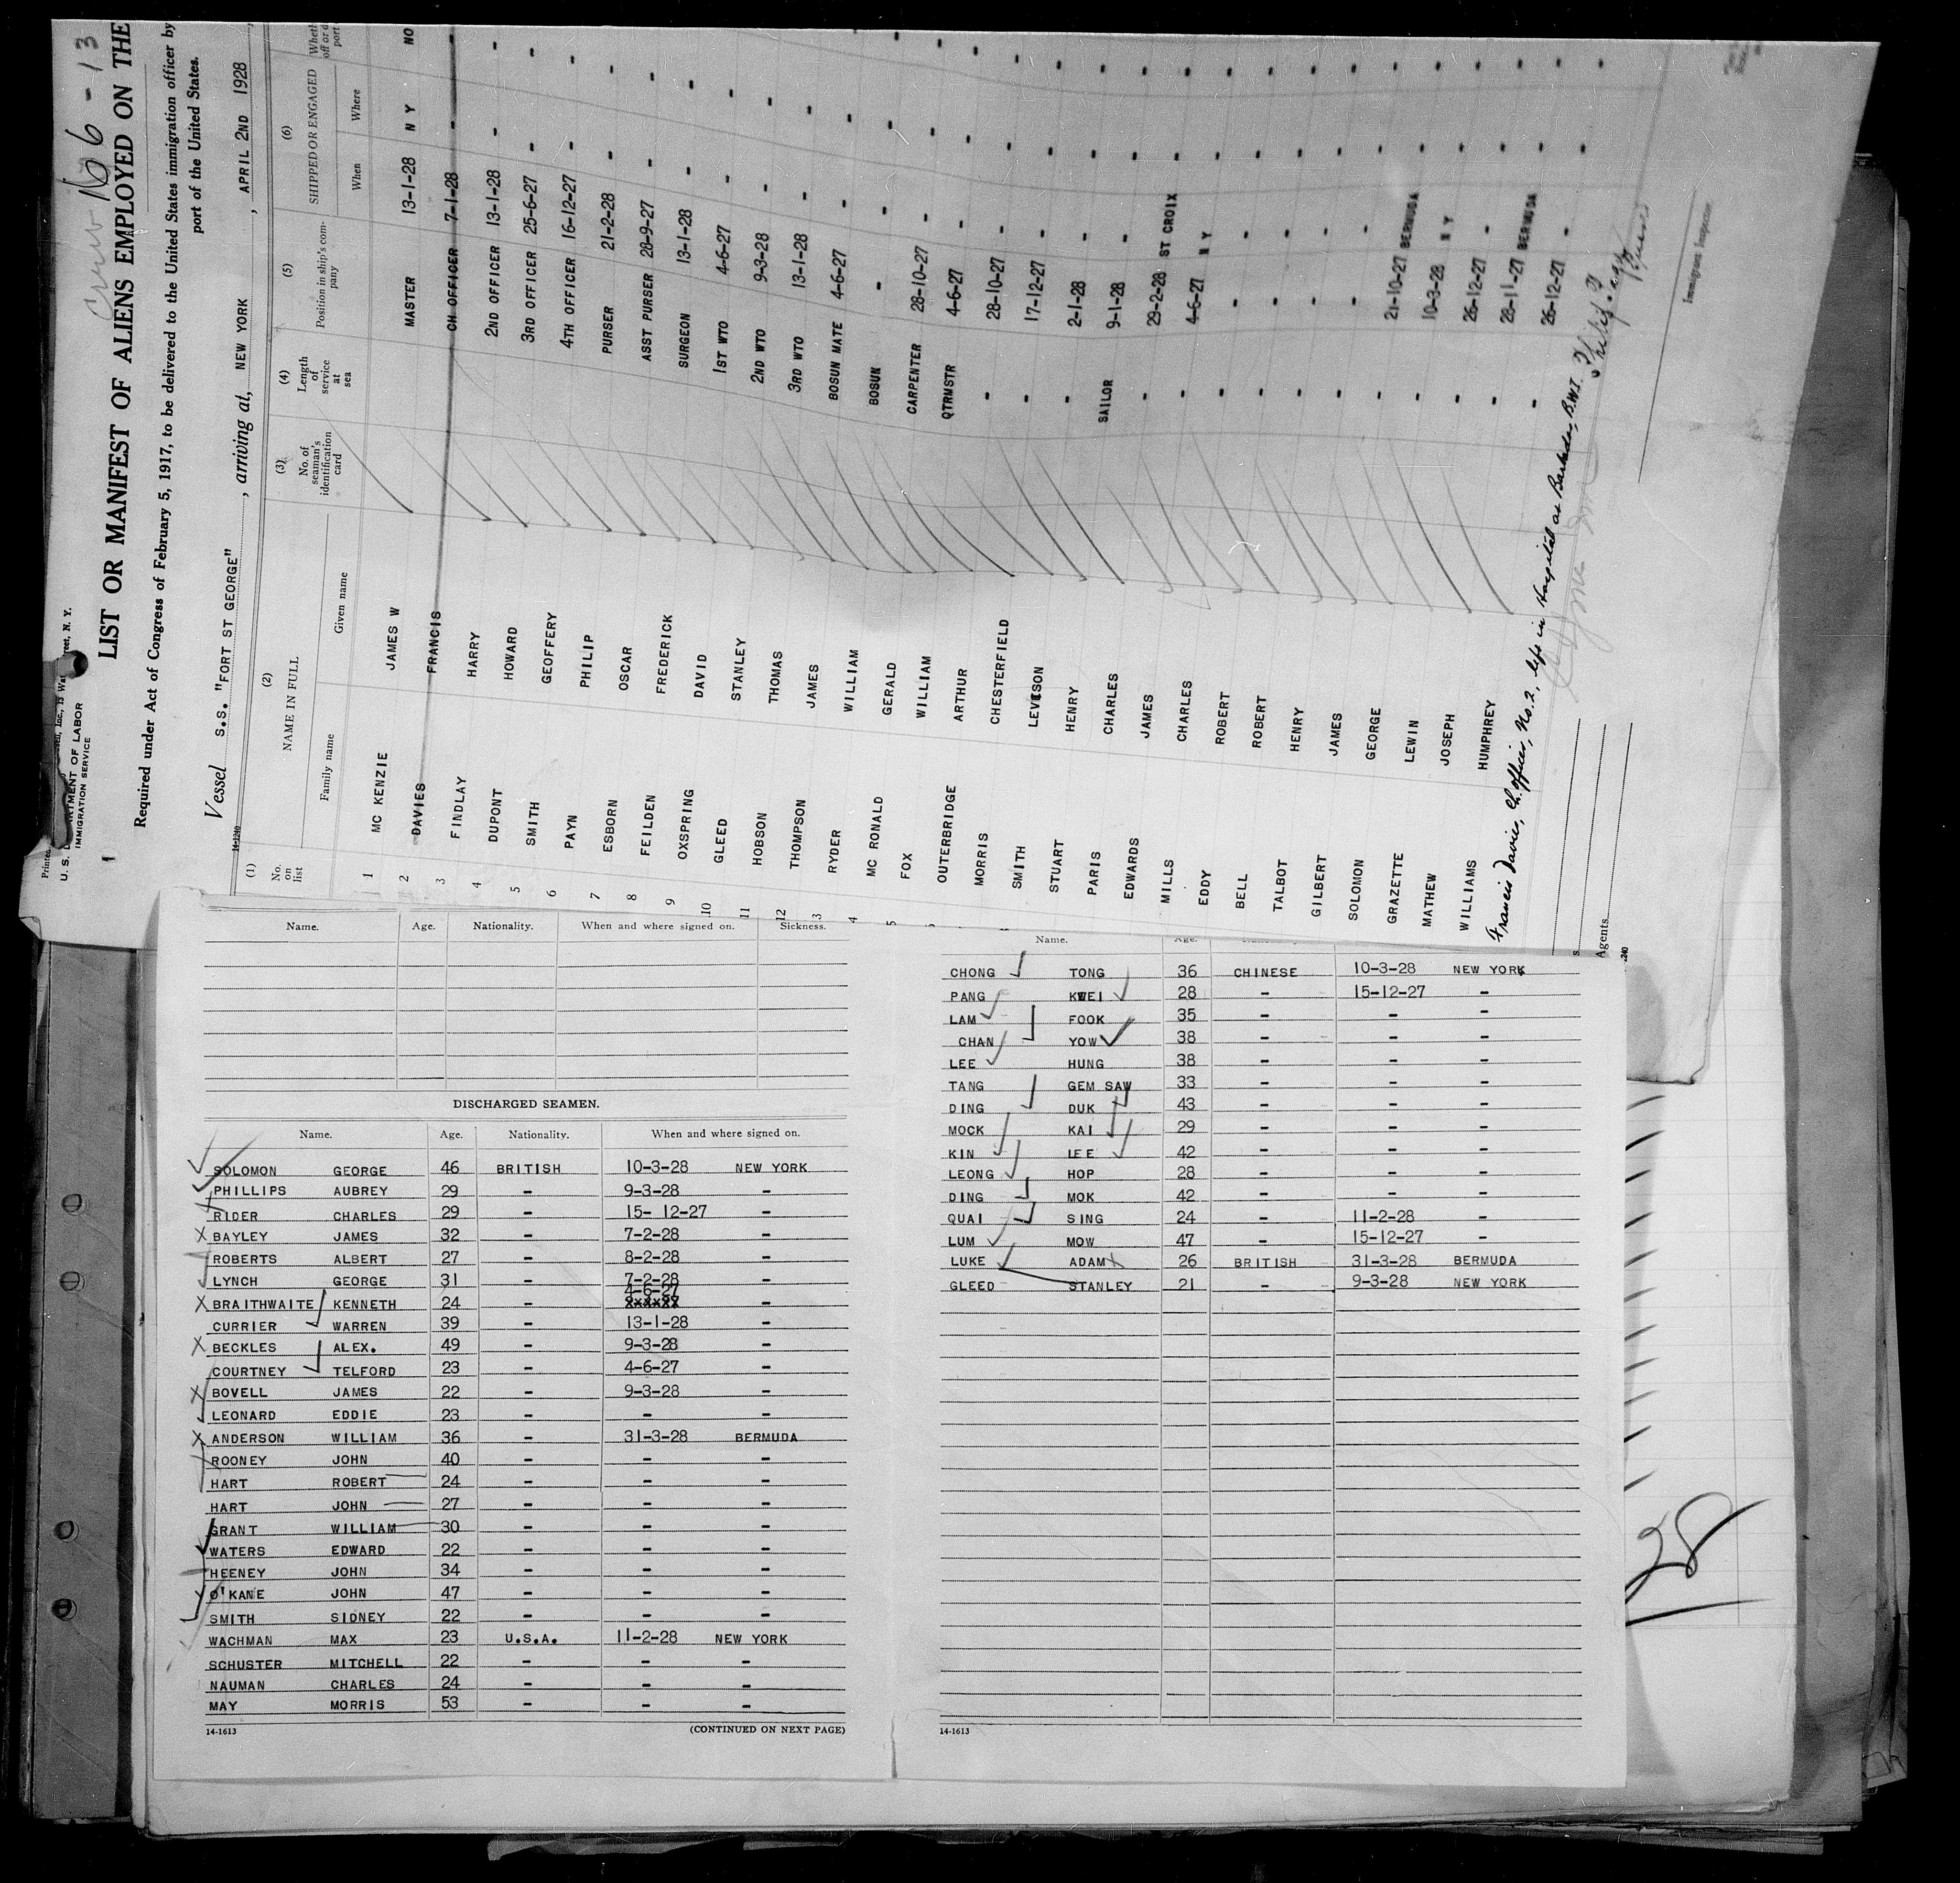 Crew 166-13
U. S. DEPARTMENT OF LABOR
IMMIGRATION SERVICE
LIST OR MANIFEST OF ALIENS EMPLOYED ON THE
Required under Act of Congress of February 5, 1917, to be delivered to the United States immigration officer by
port of the United States.
Vessel S.S. "FORT ST GEORGE", arriving at, NEW YORK, APRIL 2ND 1928
14-1240
(1) (2) (3) (4) (5) (6)
No. on list NAME IN FULL No. of seaman's identification card Length of service at sea Position in ship's company SHIPPED OR ENGAGED
Family name Given name When Where
1 MC KENZIE JAMES W MASTER 13-1-28 N Y NO
2 DAVIES FRANCIS CH OFFICER 7-1-28 - -
3 FINDLAY HARRY 2ND OFFICER 13-1-28 - -
4 DUPONT HOWARD 3RD OFFICER 25-6-27 - -
5 SMITH GEOFFERY 4TH OFFICER 16-12-27 - -
6 PAYN PHILIP PURSER 21-2-28 - -
7 ESBORN OSCAR ASST PURSER 28-9-27 - -
8 FEILDEN FREDERICK SURGEON 13-1-28 - -
9 OXSPRING DAVID 1ST WTO 4-6-27 - -
10 GLEED STANLEY 2ND WTO 9-3-28 - -
11 HOBSON THOMAS 3RD WTO 13-1-28 - -
12 THOMPSON JAMES BOSUN MATE 4-6-27 - -
3 RYDER WILLIAM BOSUN - - -
4 MC RONALD GERALD CARPENTER 28-10-27 - -
5 FOX WILLIAM QTRMSTR 4-6-27 - -
OUTERBRIDGE ARTHUR - 28-10-27 - -
MORRIS CHESTERFIELD - 17-12-27 - -
SMITH LEVISON - 2-1-28 - -
STUART HENRY SAILOR 9-1-28 - -
PARIS CHARLES - 29-2-28 ST CROIX -
EDWARDS JAMES - 4-6-27 N Y -
MILLS CHARLES - - - -
EDDY ROBERT - - - -
BELL ROBERT - - - -
TALBOT HENRY - - - -
GILBERT JAMES - 21-10-27 BERMUDA -
SOLOMON GEORGE - 10-3-28 N Y -
GRAZETTE LEWIN - 26-12-27 - -
MATHEW JOSEPH - 28-11-27 BERMUDA -
WILLIAMS HUMPHREY - 26-12-27 - -
Francis Davies, Ch. officer, No. 2, left in Hospital at Barbados, B.W.I. Philip Payn
Purser
Immigrant Inspector
Agents
Name. Age. Nationality. When and where signed on. Sickness.
DISCHARGED SEAMEN.
Name. Age. Nationality. When and where signed on.
SOLOMON GEORGE 46 BRITISH 10-3-28 NEW YORK
PHILLIPS AUBREY 29 - 9-3-28 -
RIDER CHARLES 29 - 15- 12-27 -
X BAYLEY JAMES 32 - 7-2-28 -
ROBERTS ALBERT 27 - 8-2-28 -
LYNCH GEORGE 31 - 7-2-28 -
4-6-27
X BRAITHWAITE KENNETH 24 - xxxxxx -
CURRIER WARREN 39 - 13-1-28 -
X BECKLES ALEX. 49 - 9-3-28 -
COURTNEY TELFORD 23 - 4-6-27 -
X BOVELL JAMES 22 - 9-3-28 -
LEONARD EDDIE 23 - - -
X ANDERSON WILLIAM 36 - 31-3-28 BERMUDA
ROONEY JOHN 40 - - -
HART ROBERT 24 - - -
HART JOHN 27 - - -
GRANT WILLIAM 30 - - -
WATERS EDWARD 22 - - -
HEENEY JOHN 34 - - -
O'KANE JOHN 47 - - -
SMITH SIDNEY 22 - - -
WACHMAN MAX 23 U.S.A. 11-2-28 NEW YORK
SCHUSTER MITCHELL 22 - - -
NAUMAN CHARLES 24 - - -
MAY MORRIS 53 - - -
14-1613 (CONTINUED ON NEXT PAGE)
Name. Age.
CHONG TONG 36 CHINESE 10-3-28 NEW YORK
PANG KWEI 28 - 15-12-27 -
LAM FOOK 35 - - -
CHAN YOW 38 - - -
LEE HUNG 38 - - -
TANG GEM SAW 33 - - -
DING DUK 43 - - -
MOCK KAI 29 - - -
KIN LEE 42 - - -
LEONG HOP 28 - - -
DING MOK 42 - - -
QUAI SING 24 - 11-2-28 -
LUM MOW 47 - 15-12-27 -
LUKE ADAM 26 BRITISH 31-3-28 BERMUDA
GLEED STANLEY 21 - 9-3-28 NEW YORK
14-1613
128